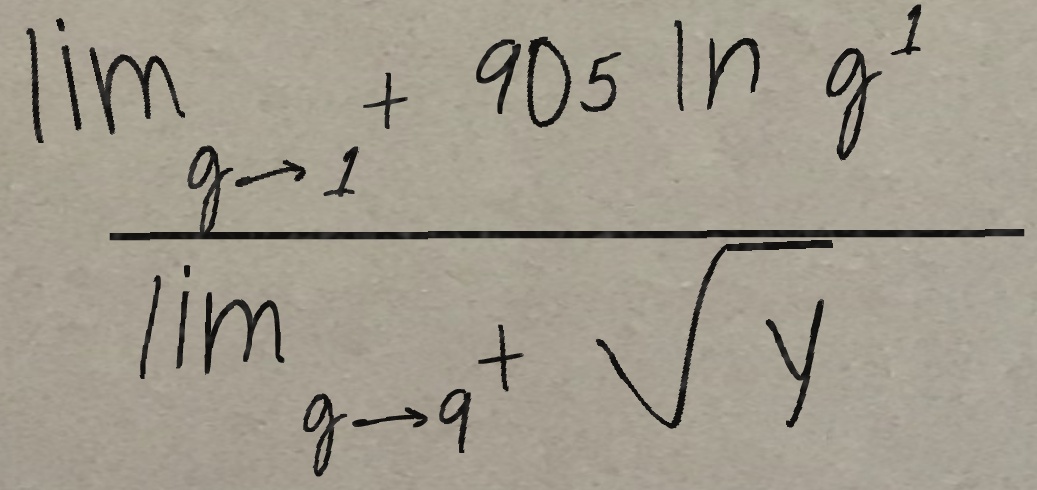 \frac{\lim_{g \to 1^+} 905 \ln g^1}{\lim_{g \to 9^+} \sqrt{y}}